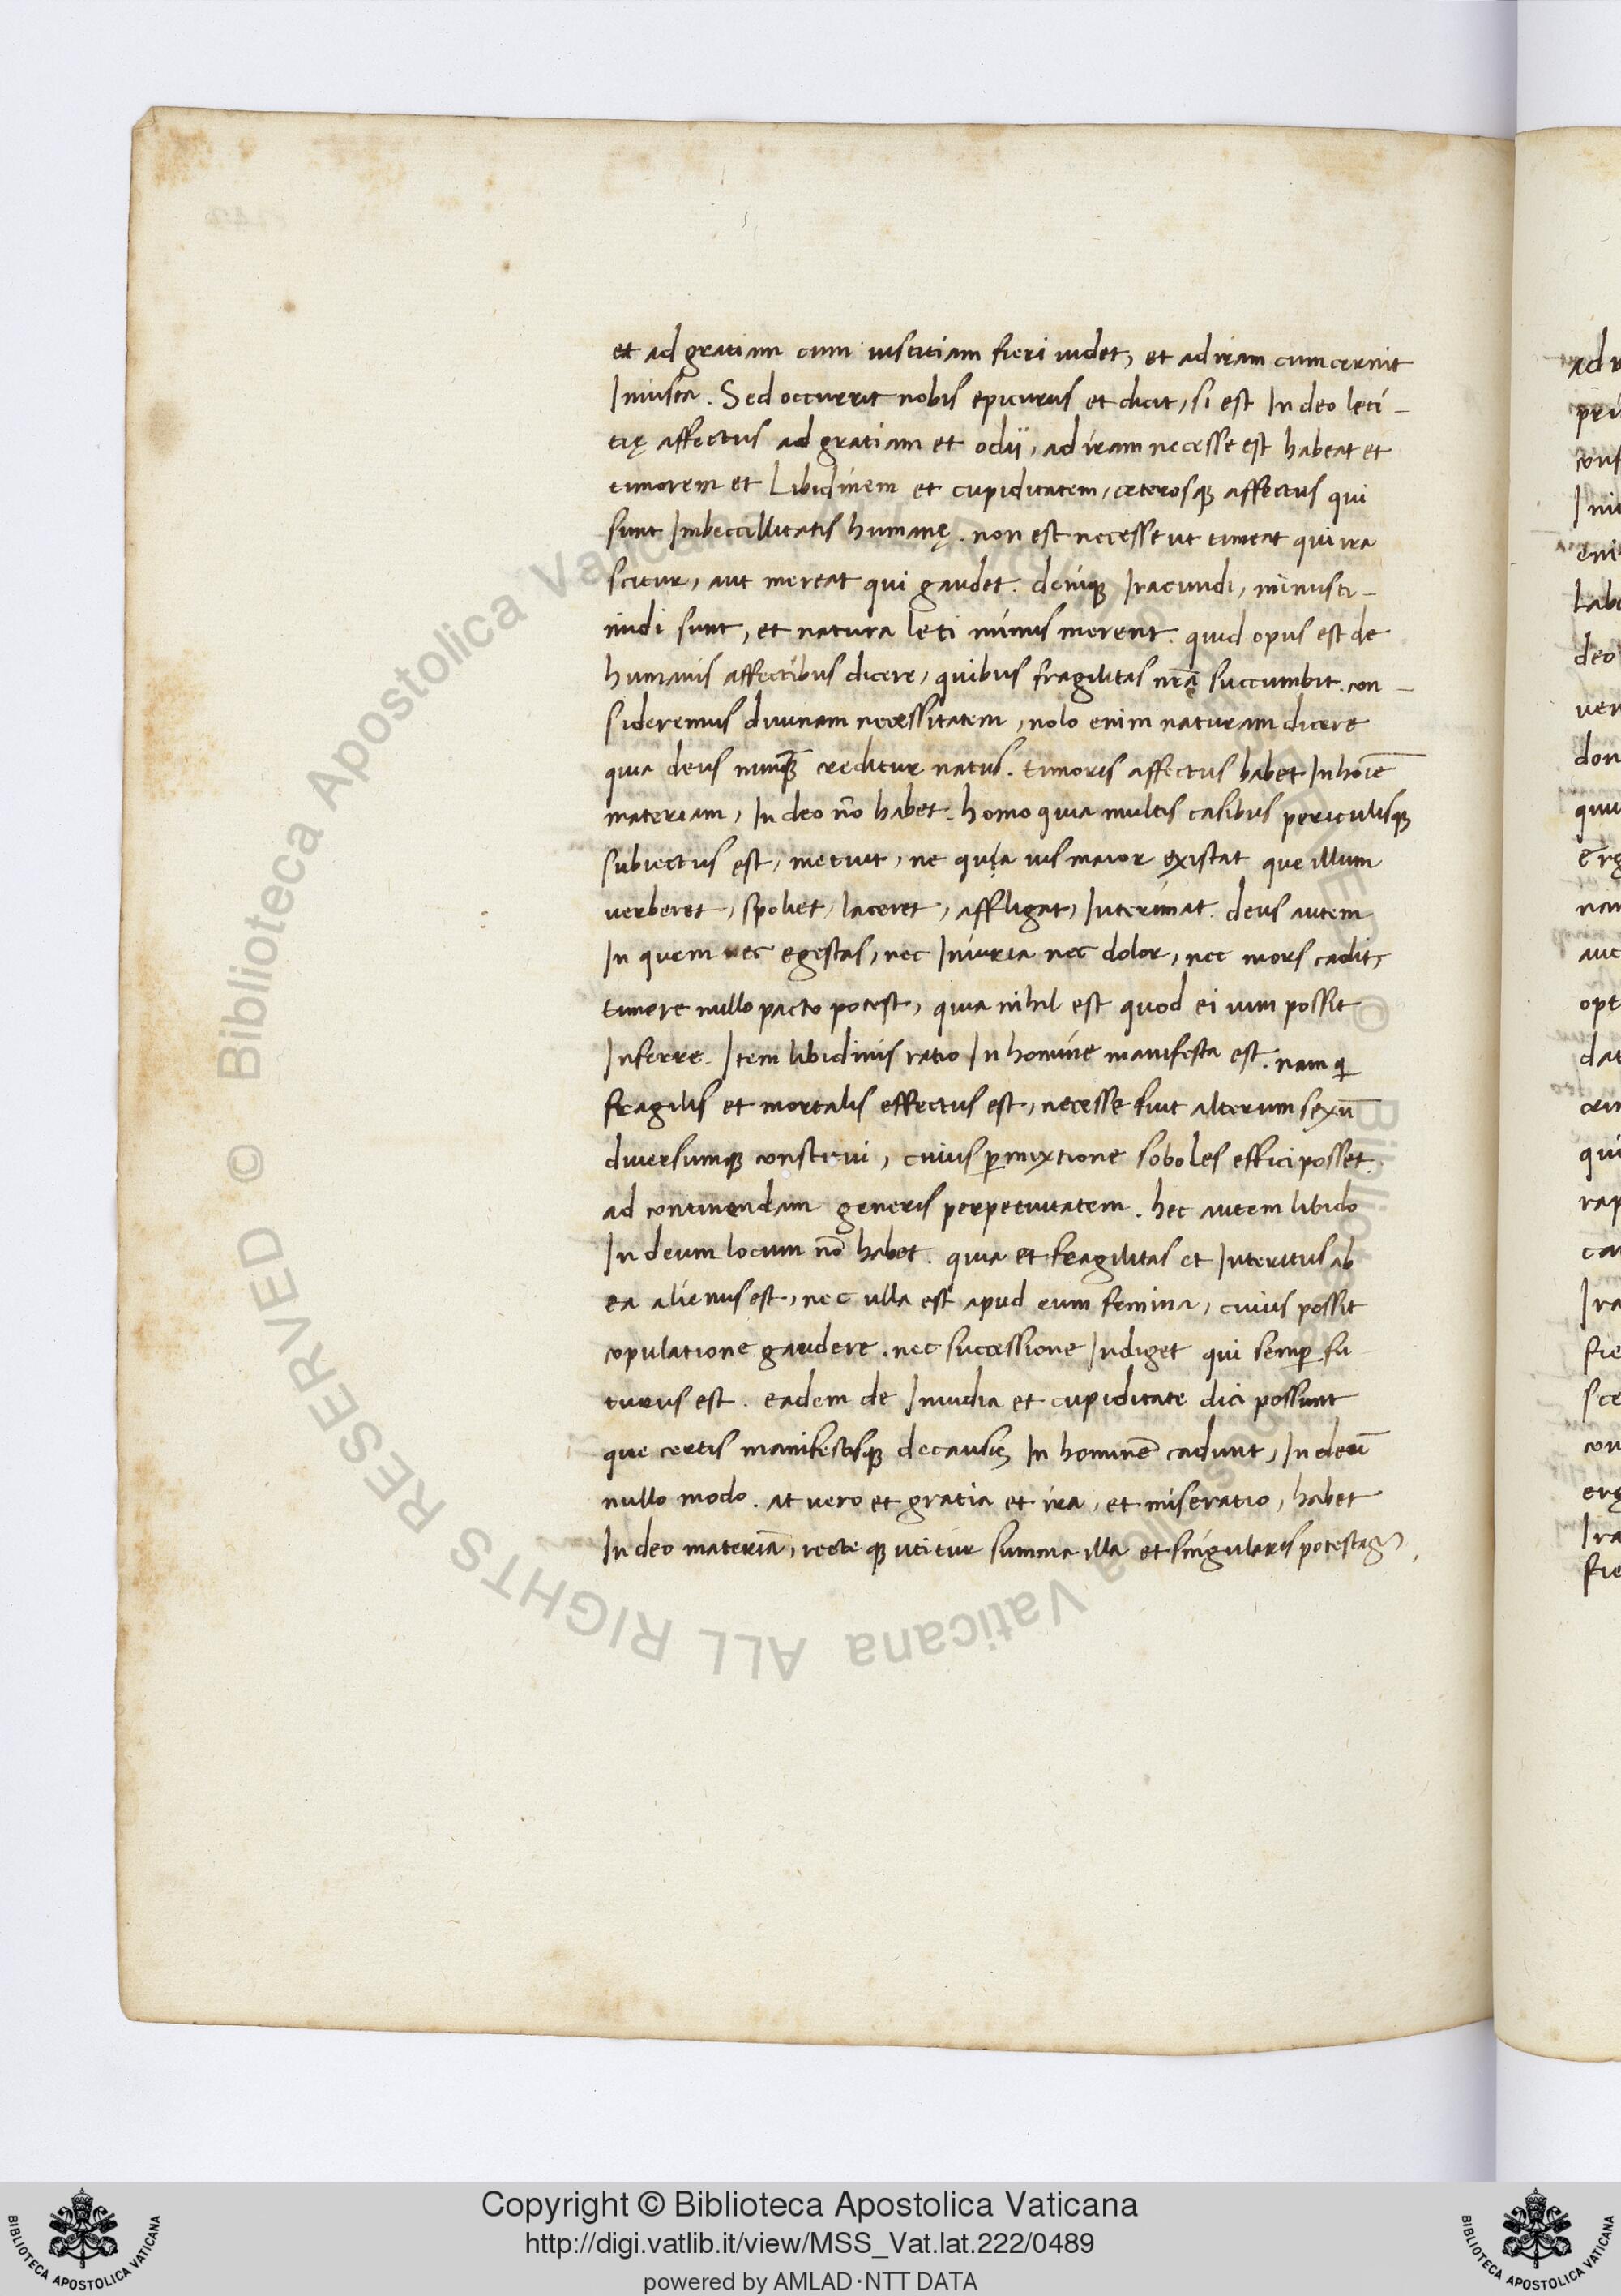 et ad gratiam cum iustitiam fieri uidet, et ad iram cum cernit
Iniusta. Sed occurrit nobis epicurus et dicit, si est In deo leti-
tię affectus ad gratiam et odii, ad iram necesse est habeat et
timorem et Libidinem et cupiditatem, ceterosqꝫ affectus qui
sunt Imbeccillitatis humanę. non est necesse ut timeat qui ira
scitur, aut mereat qui gaudet. deniqꝫ Iracundi, minus ti-
midi sunt, et natura leti minus merent. quid opus est de
humanis affectibus dicere, quibus fragilitas nr̄a succumbit. con-
sideremus diuinam necessitatem, nolo enim naturam dicere
quia deus nunqꝫ̄ creditur natus. timoris affectus habet In hoīe
materiam, In deo nō habet. homo quia multis casibus periculisqꝫ
subiectus est, metuit, ne quia uis maior existat que illum
uerberet, spoliet, laceret, affligat, Interimat. deus autem
In quem nec egestas, nec Iniuria nec dolor, nec mors cadit,
timere nullo pacto potest, quia nihil est quod ei uim possit
Inferre. Item libidinis ratio In homine manifesta est. nam qi
fragilis et mortalis effectus est, necesse fuit alterum sexū
diuersumqꝫ constitui, cuius ꝑmixtione soboles effici posset.
ad continendam generis perpetuitatem. hec autem libido
In deum locum nō habet. quia et fragilitas et Interitus ab
ea alienus est, nec ulla est apud eum femina, cuius possit
copulatione gaudere. nec successione Indiget qui semꝑ fu
turus est. eadem de Inuidia et cupiditate dici possunt
que certis manifestisqꝫ de causis In hominē cadunt, In deū
nullo modo. at uero et gratia et ira, et miseratio, habet
In deo materiā, recteqꝫ utitur summa illa et singularis potestas
Copyright © Biblioteca Apostolica Vaticana
http://digi.vatlib.it/view/MSS_Vat.lat.222/0489
powered by AMLAD·NTT DATA
BIBLIOTECA APOSTOLICA VATICANA
BIBLIOTECA APOSTOLICA VATICANA
© Biblioteca Apostolica Vaticana ALL RIGHTS RESERVED
© Biblioteca Apostolica Vaticana ALL RIGHTS RESERVED